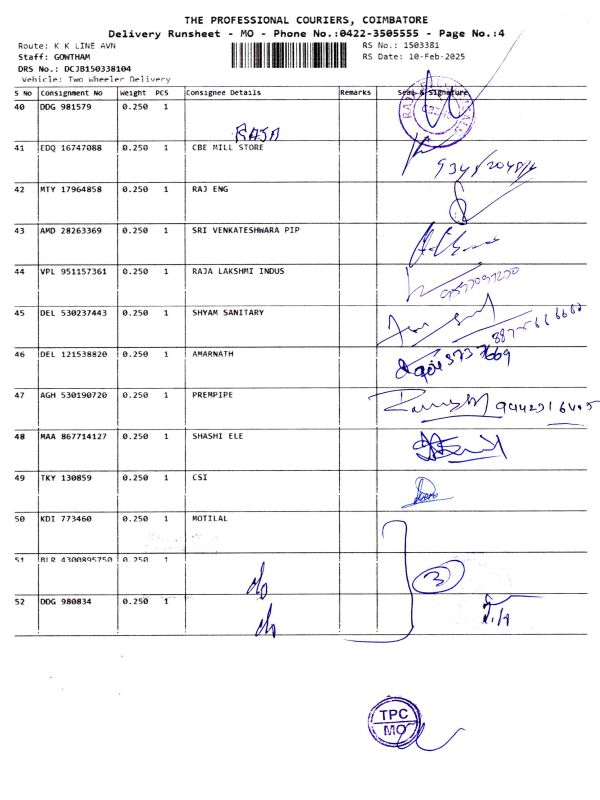 THE PROFESSIONAL COURIERS, COIMBATORE
Delivery Runsheet - MO - Phone No.:0422-3505555 - Page No.:4
Route: K K LINE AVN RS No.: 1503381
Staff: GOWTHAM RS Date: 10-Feb-2025
DRS No.: DCJB150338104
Vehicle: Two Wheeler Delivery
S No Consignment No Weight PCS Consignee Details Remarks Seal & Signature
40 DDG 981579 0.250 1
RAJA
41 EDQ 16747088 0.250 1 CBE MILL STORE
42 MTY 17964858 0.250 1 RAJ ENG
43 AMD 28263369 0.250 1 SRI VENKATESHWARA PIP
44 VPL 951157361 0.250 1 RAJA LAKSHMI INDUS
45 DEL 530237443 0.250 1 SHYAM SANITARY
46 DEL 121538820 0.250 1 AMARNATH
47 AGH 530190720 0.250 1 PREMPIPE
48 MAA 867714127 0.250 1 SHASHI ELE
49 TKY 130859 0.250 1 CSI
50 KDI 773460 0.250 1 MOTILAL
51 BLR 4300895750 0.250 1
3
52 DDG 980834 0.250 1
TPC
MO